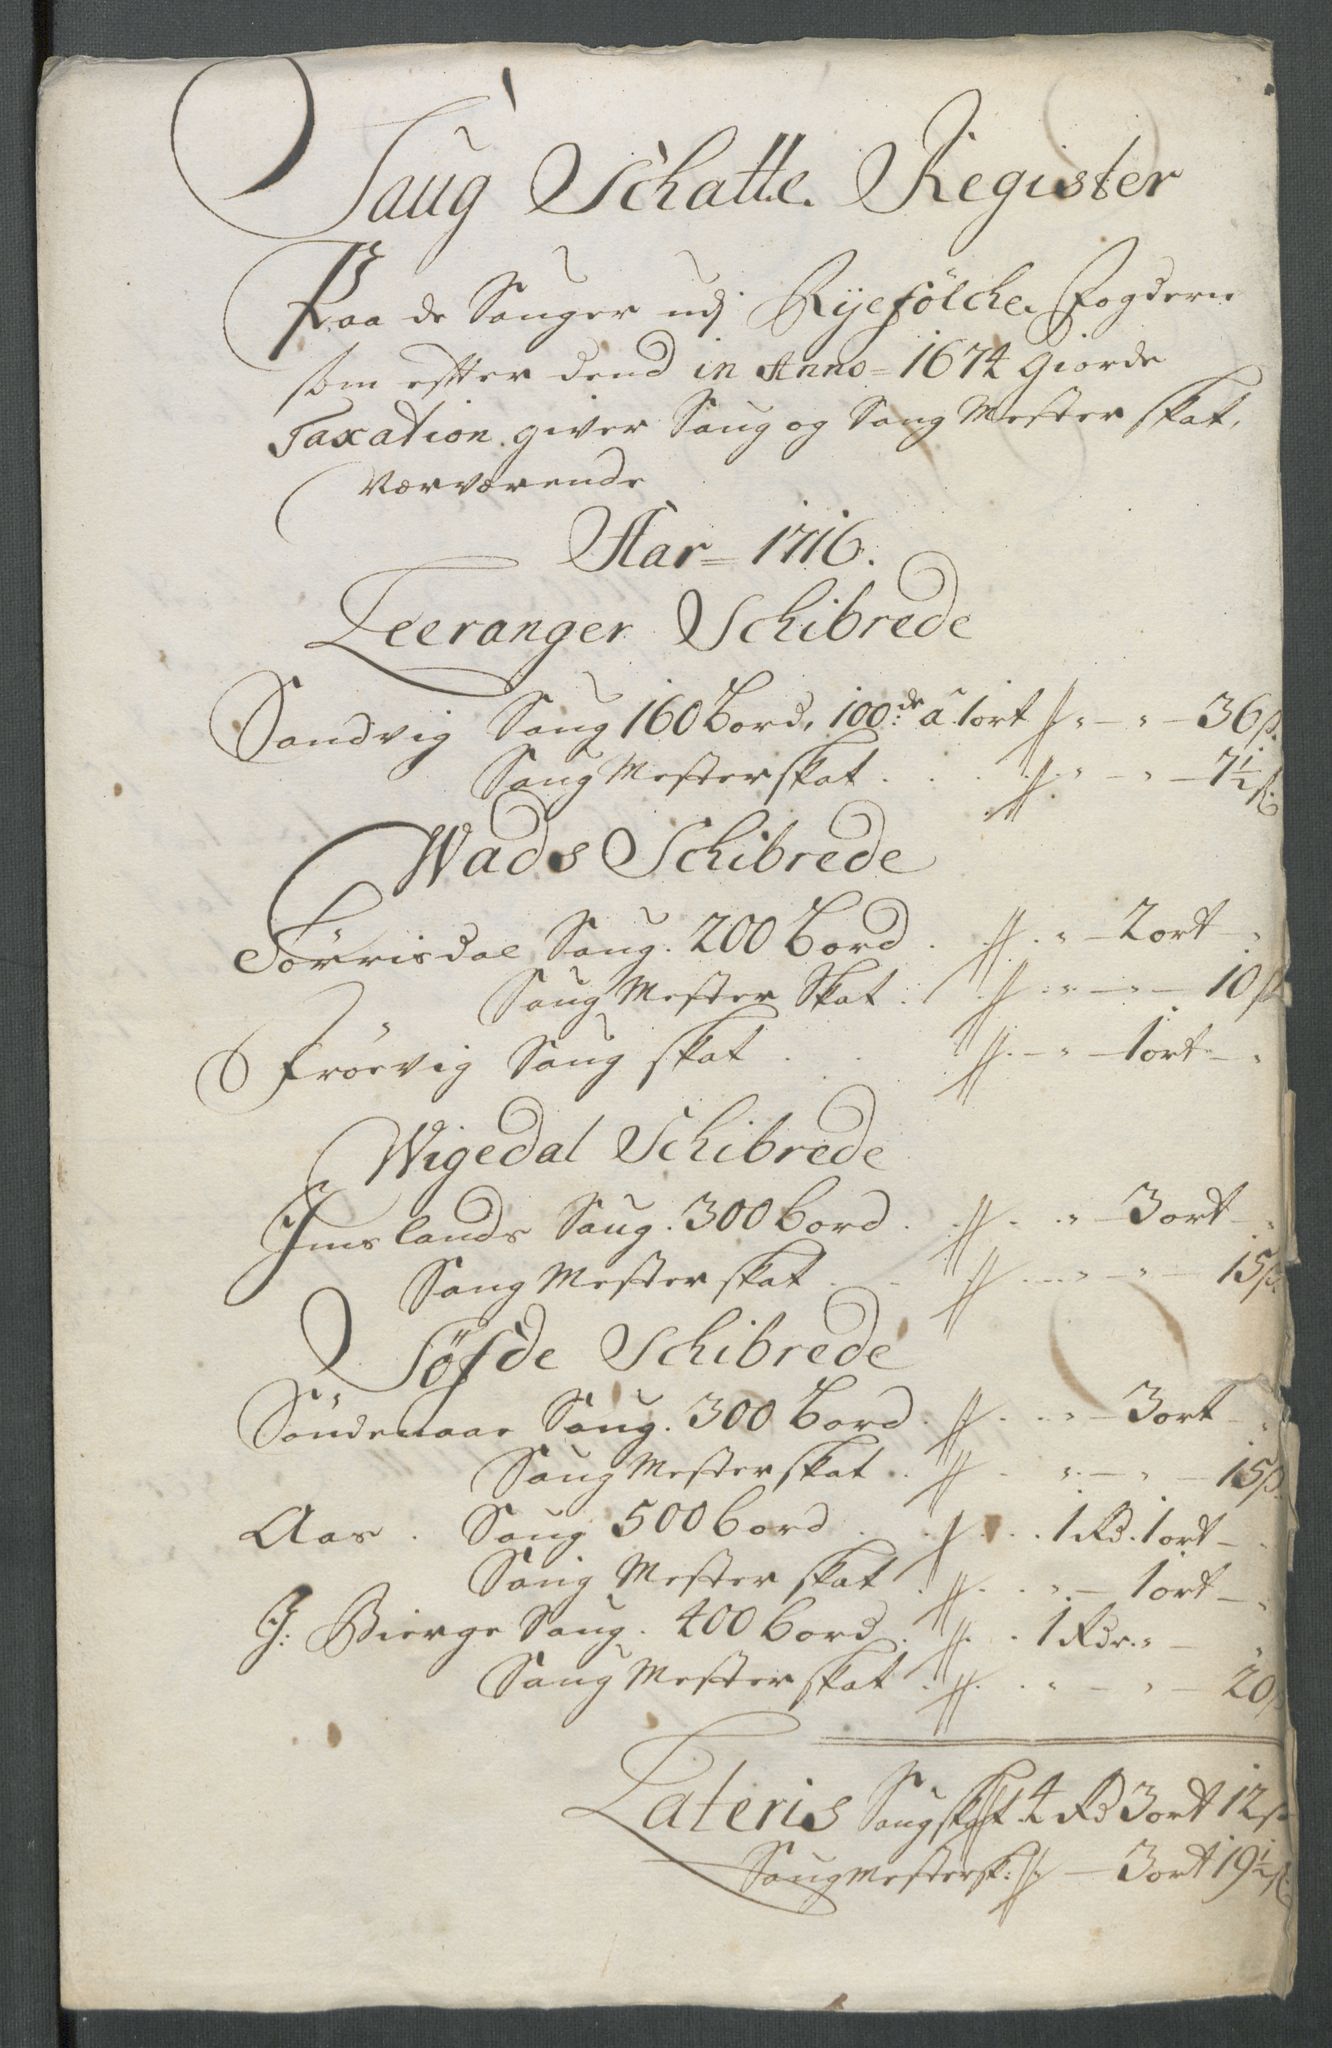 Saug Schatte Register
Paa de Sauger udj Ryefölche Fogderie
som effter dend in Anno = 1674 giorde
Taxation giver Saug og Saug Mester skat,
Nærværende
Aar = 1716.
Leeranger Schibrede
Sandvig Saug 160 Bord, 100:de â 1 ort // " — " — 36 ß.
Saug Mester skat . . . // " — " — 7½ ß:
Wads Schibrede
Törrisdal Saug. 200 Bord . // . " — 2 ort — "
Saug Mester Skat . // . " — " — 10 ß
Fröevig Saug skat . . // . — " — 1 ort — "
Wigedal Schibrede
Imslands Saug. 300 bord . // . . " — 3 ort — "
Saug Mester skat . . // . . . " — " — 15 ß.
Söfde Schibrede
Söndenaae Saug. 300 Bord . // . . " — 3 ort — "
Saug Mester skat . // . " — " — 15 ß.
Aas . Saug 500 bord . . // . . 1 Rd. 1 ort — .
Saug Mester skat . // . . " — 1 ort — "
J: Bierge Saug. 400 bord . // . . 1 Rdr. " — "
Saug Mester skat . // . . " — " — 20 ß
Lateris Saugskat 4 Rd 3 ort 12 ß
Saugmestersk: // — 3 ort 19½ ß: